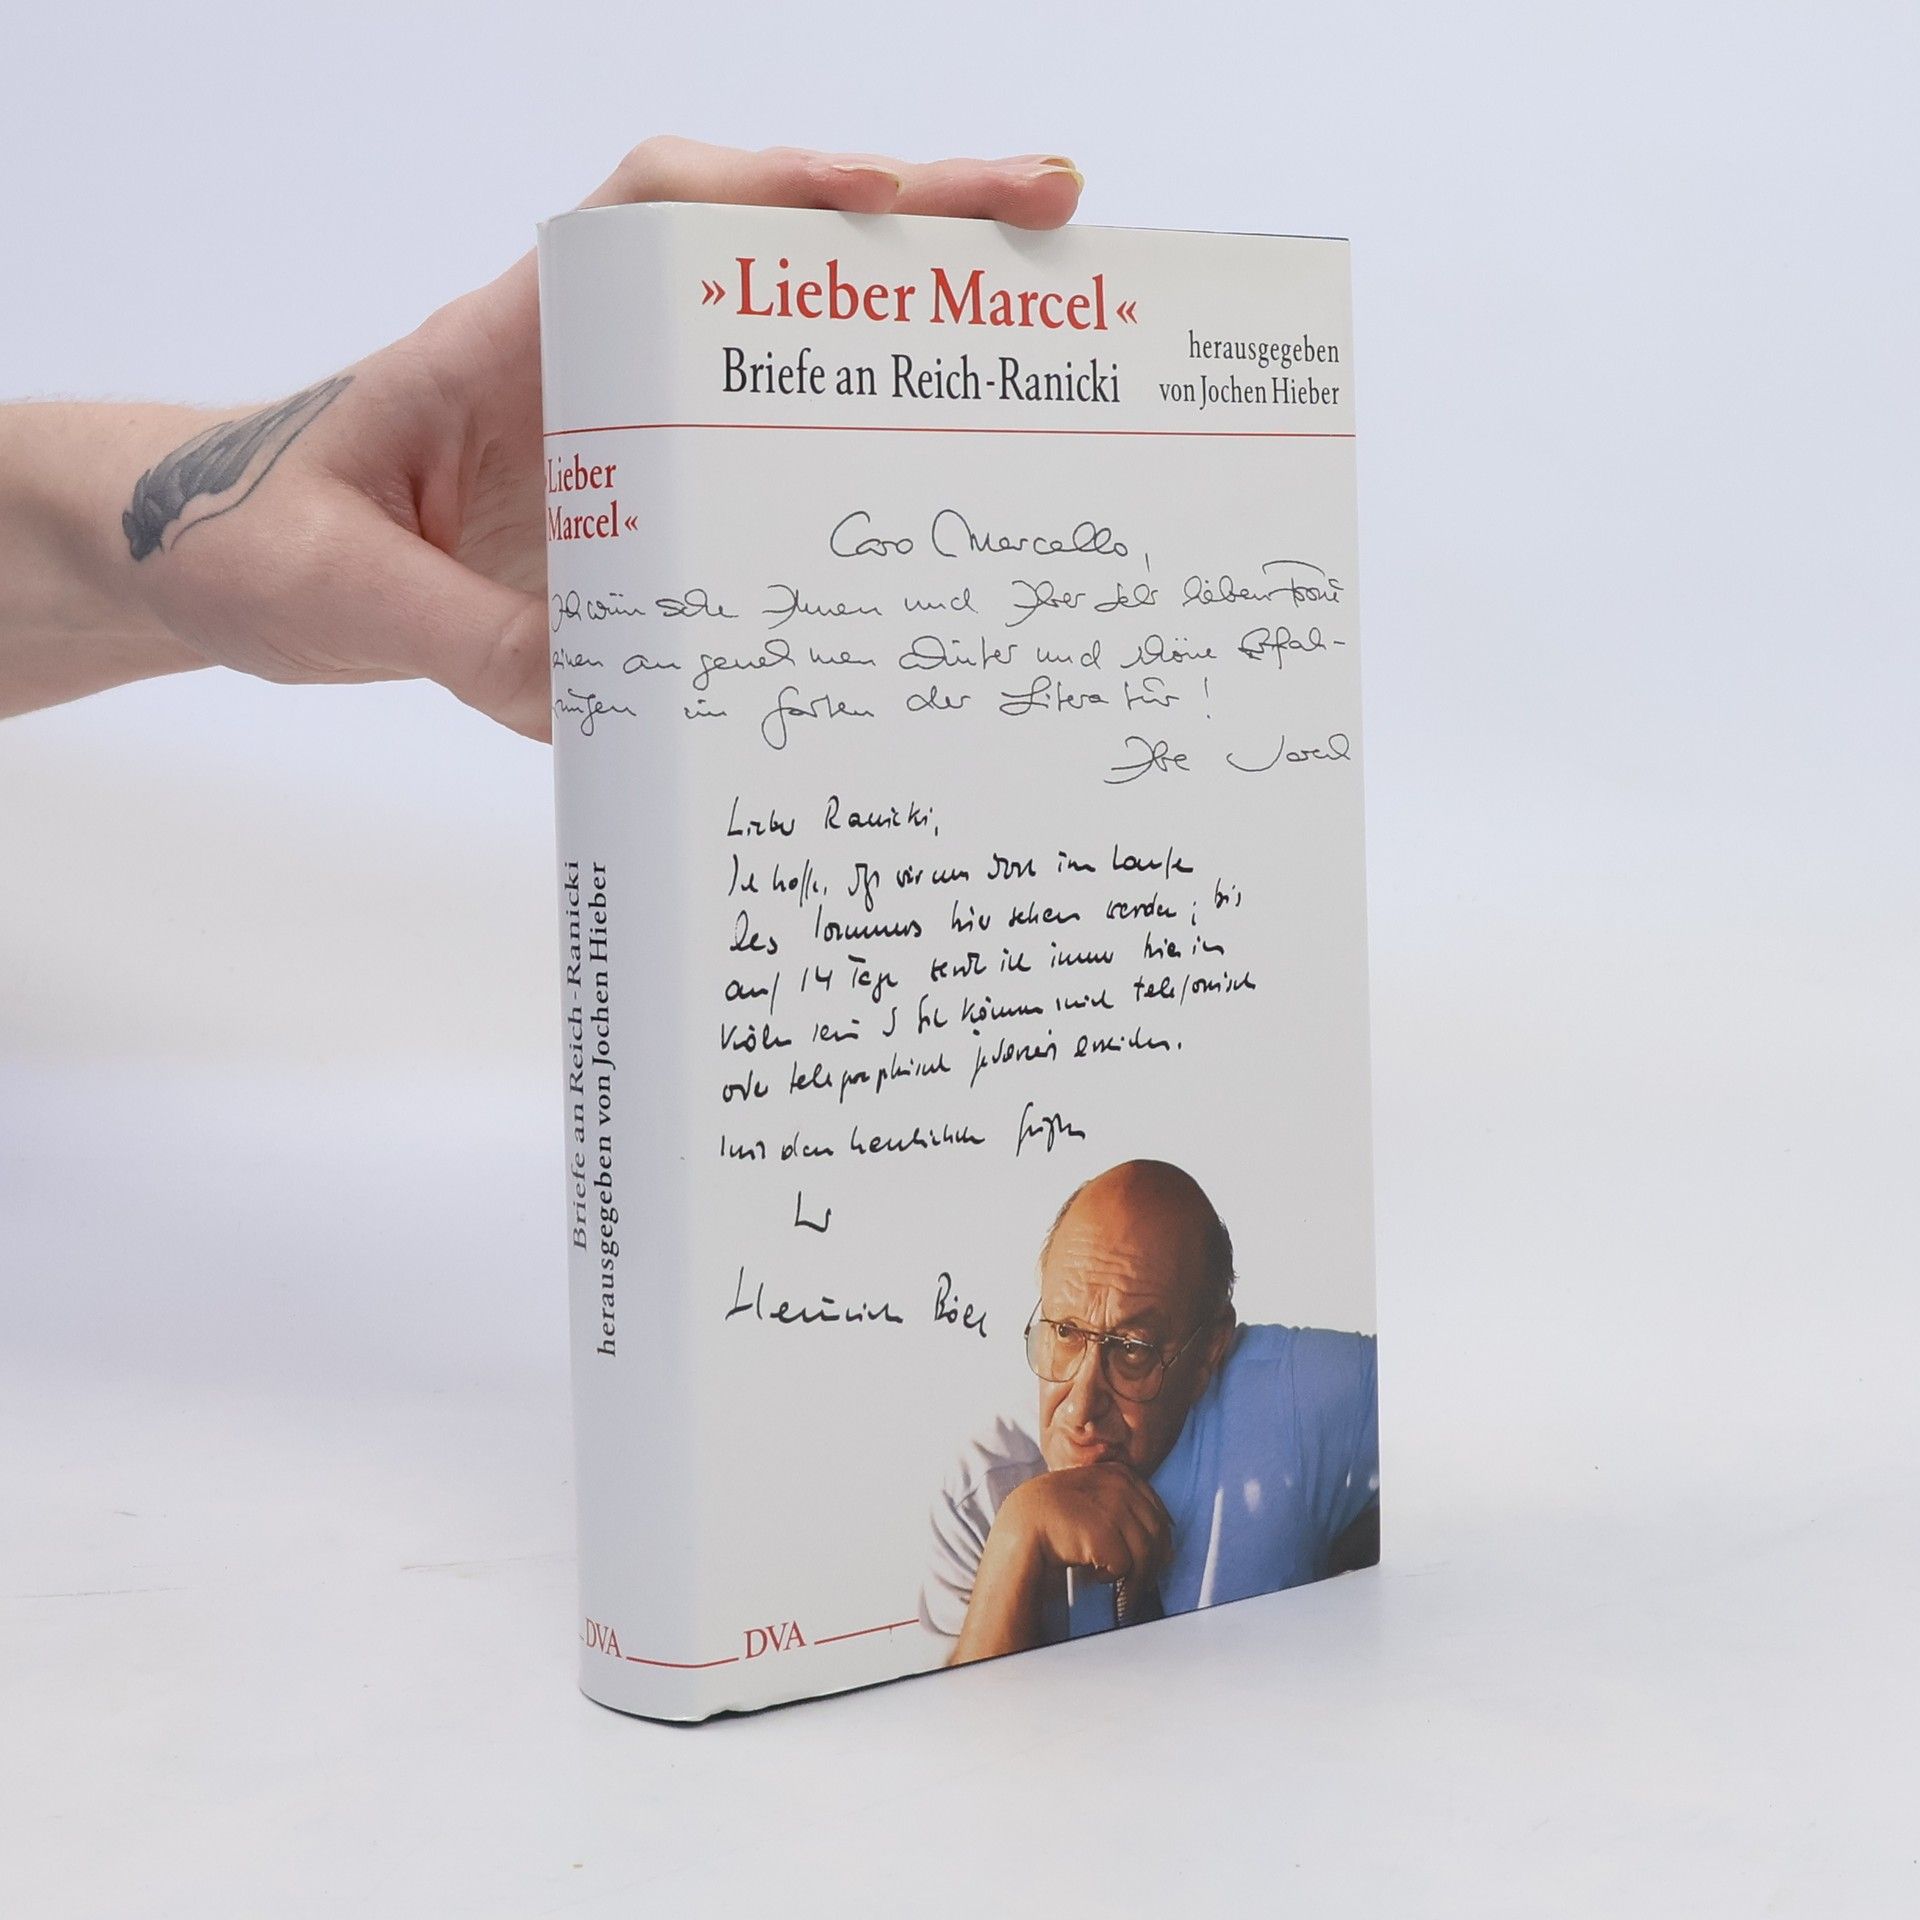 »Lieber Marcel«
Briefe an Reich-Ranicki
herausgegeben
von Jochen Hieber
Lieber
Marcel«
Briefe an Reich-Ranicki
herausgegeben von Jochen Hieber
Caro Marcello,
Ich wünsche Ihnen und Ihrer sehr lieben Frau
einen angenehmen Winter und schöne Erfah-
rungen im Garten der Literatur!
Ihre Sarah
Lieber Ranicki,
Ich hoffe, daß wir uns dort im Laufe
des Sommers hier sehen werden; bis
auf 14 Tage werde ich immer hier in
Köln sein Sie können mich telefonisch
oder telegraphisch jederzeit erreichen.
Mit den herzlichsten Grüßen
Ihr
Heinrich Böll
DVA
DVA